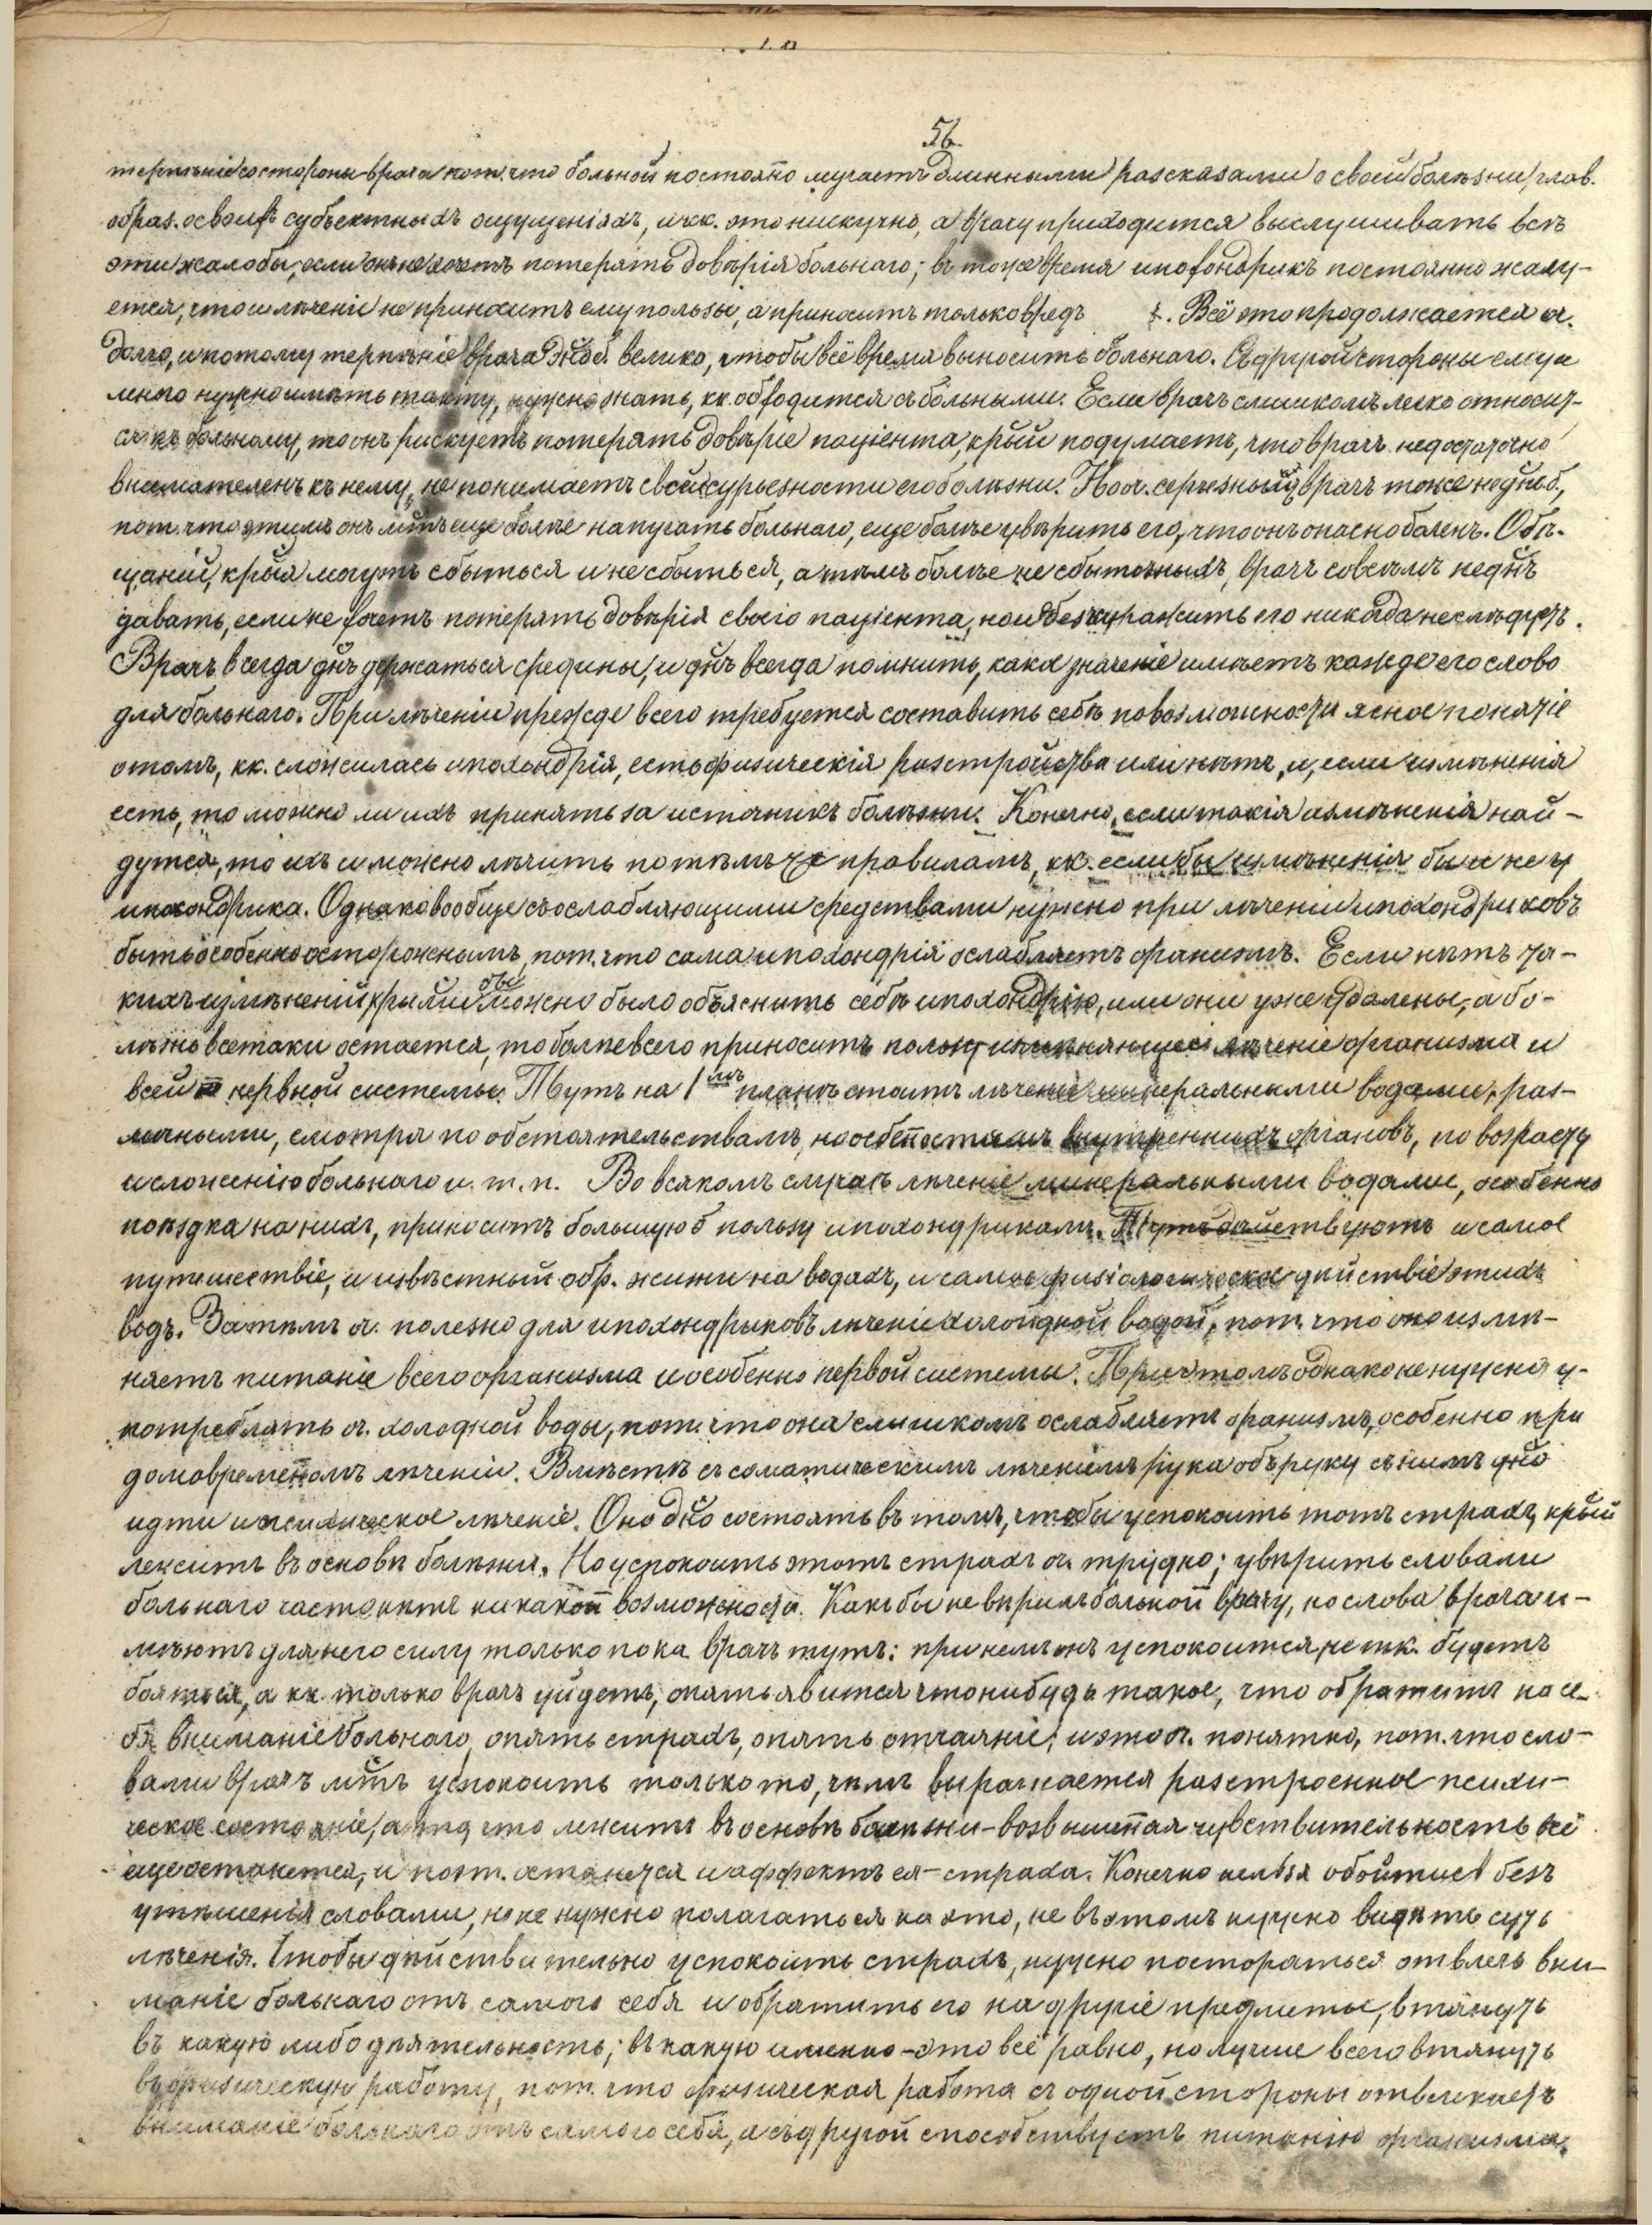 56.
терпѣніе со стороны врача пот. что больной постоянно мучаетъ длинными разсказами о своей болѣзни, глав.
образ. о своихъ субъектныхъ ощущеніяхъ, и кк. это ни скучно, а врачу приходится выслушивать всѣ
эти жалобы, если онъ не хочетъ потерять довѣрія больнаго; въ тоже время ипохондрикъ постоянно жалу-
ется, что и лѣченіе не приноситъ ему пользы, а приноситъ только вредъ. Всё это продолжается оч.
долго, и потому терпѣніе врача дно б. велико, чтобы всё время выносить больнаго. Съ другой стороны ему и
много нужно имѣть такту, нужно знать, кк. обходится съ больными. Если врачъ слишкомъ легко относит-
ся къ больному, то онъ рискуетъ потерять довѣріе паціента, крый подумаетъ, что врачъ недостаточно
внимателенъ къ нему, не понимаетъ всей сурьезности его болѣзни. Но оч. серьезный врачъ тоже не днъ б.,
пот. что этимъ онъ мтъ еще болѣе напугать больнаго, еще болѣе увѣрить его, что онъ опасно боленъ. Обѣ-
щаній, крыя могутъ сбыться и не сбыться, а тѣмъ болѣе не сбыточныхъ, врачъ совсѣмъ не днъ
давать, если не хочетъ потерять довѣрія своего паціента, но и обезкуражить его никогда не слѣдуетъ.
Врачъ всегда днъ держаться средины, и днъ всегда помнить, какое значеніе имѣетъ каждое его слово
для больнаго. При лѣченіи прежде всего требуется составить себѣ по возможности ясное понятіе
о томъ, кк. сложилась ипохондрія, есть физическія разстройства или нѣтъ, и, если измѣненія
есть, то можно ли ихъ принять за источникъ болѣзни. Конечно, если такія измѣненія най-
дутся, то ихъ и можно лѣчить по тѣмъ же правиламъ, кк. если бы измѣненія были не у
ипохондрика. Однако вообще съ ослабляющими средствами нужно при лѣченіи ипохондриковъ
быть особенно осторожнымъ, пот. что сама ипохондрія ослабляетъ организмъ. Если нѣтъ та-
кихъ измѣненій, крыми бы можно было объяснить себѣ ипохондрію, или они уже удалены, а бо-
лѣзнь всетаки остается, то болѣе всего приноситъ пользу лѣченіе организма и
всей нервной системы. Тутъ на 1мъ планѣ стоитъ лѣченіе минеральными водами, раз-
личными, смотря по обстоятельствамъ, по особенностямъ внутреннихъ органовъ, по возрасту
и сложенію больнаго и т. п. Во всякомъ случаѣ лѣченіе минеральными водами, особенно
поѣздка на нихъ, приноситъ большую пользу ипохондрикамъ. Тутъ дѣйствуютъ и самое
путешествіе, и извѣстный обр. жизни на водахъ, и самое физіологическое дѣйствіе этихъ
водъ. Затѣмъ оч. полезно для ипохондриковъ лѣченіе холодной водой, пот. что оно измѣ-
няетъ питаніе всего организма и особенно нервой системы. При этомъ однако не нужно у-
потреблять оч. холодной воды, пот. что она слишкомъ ослабляетъ организмъ, особенно при
долговременномъ лѣченіи. Вмѣстѣ съ соматическимъ лѣченіемъ рука объ руку съ нимъ дно
идти и психическое лѣченіе. Оно дно состоять въ томъ, чтобы успокоить тотъ страхъ, крый
лежитъ въ основѣ болѣзни. Но успокоить этотъ страхъ оч. трудно; увѣрить словами
больнаго часто нѣтъ никакой возможности. Какъ бы не вѣрилъ больной врачу, но слова врача и-
мѣютъ для него силу только пока врачъ тутъ: при немъ онъ успокоится, не тк. будетъ
бояться, а кк. только врачъ уйдетъ, опять явится что нибудь такое, что обратитъ на се-
бя вниманіе больнаго, опять страхъ, опять отчаяніе; и это оч. понятно, пот. что сло-
вами врачъ мтъ успокоить только то, чѣмъ выражается разстроенное психи-
ческое состояніе, а то, что лежитъ въ основѣ болѣзни – возвышенная чувствительность всё
еще останется, и пот. останется и аффектъ ея – страха. Конечно нельзя обойтись безъ
утѣшенія словами, но не нужно полагаться на это, не въ этомъ нужно видѣть суть
лѣченія. Чтобы дѣйствительно успокоить страхъ, нужно постораться отвлечь вни-
маніе больнаго отъ самого себя и обратить его на другіе предметы, втянуть
въ какую либо дѣятельность; въ какую именно – это всё равно, но лучше всего втянуть
въ физическую работу, пот. что физическая работа съ одной стороны отвлекаетъ
вниманіе больнаго отъ самого себя, а съ другой способствуетъ питанію организма.